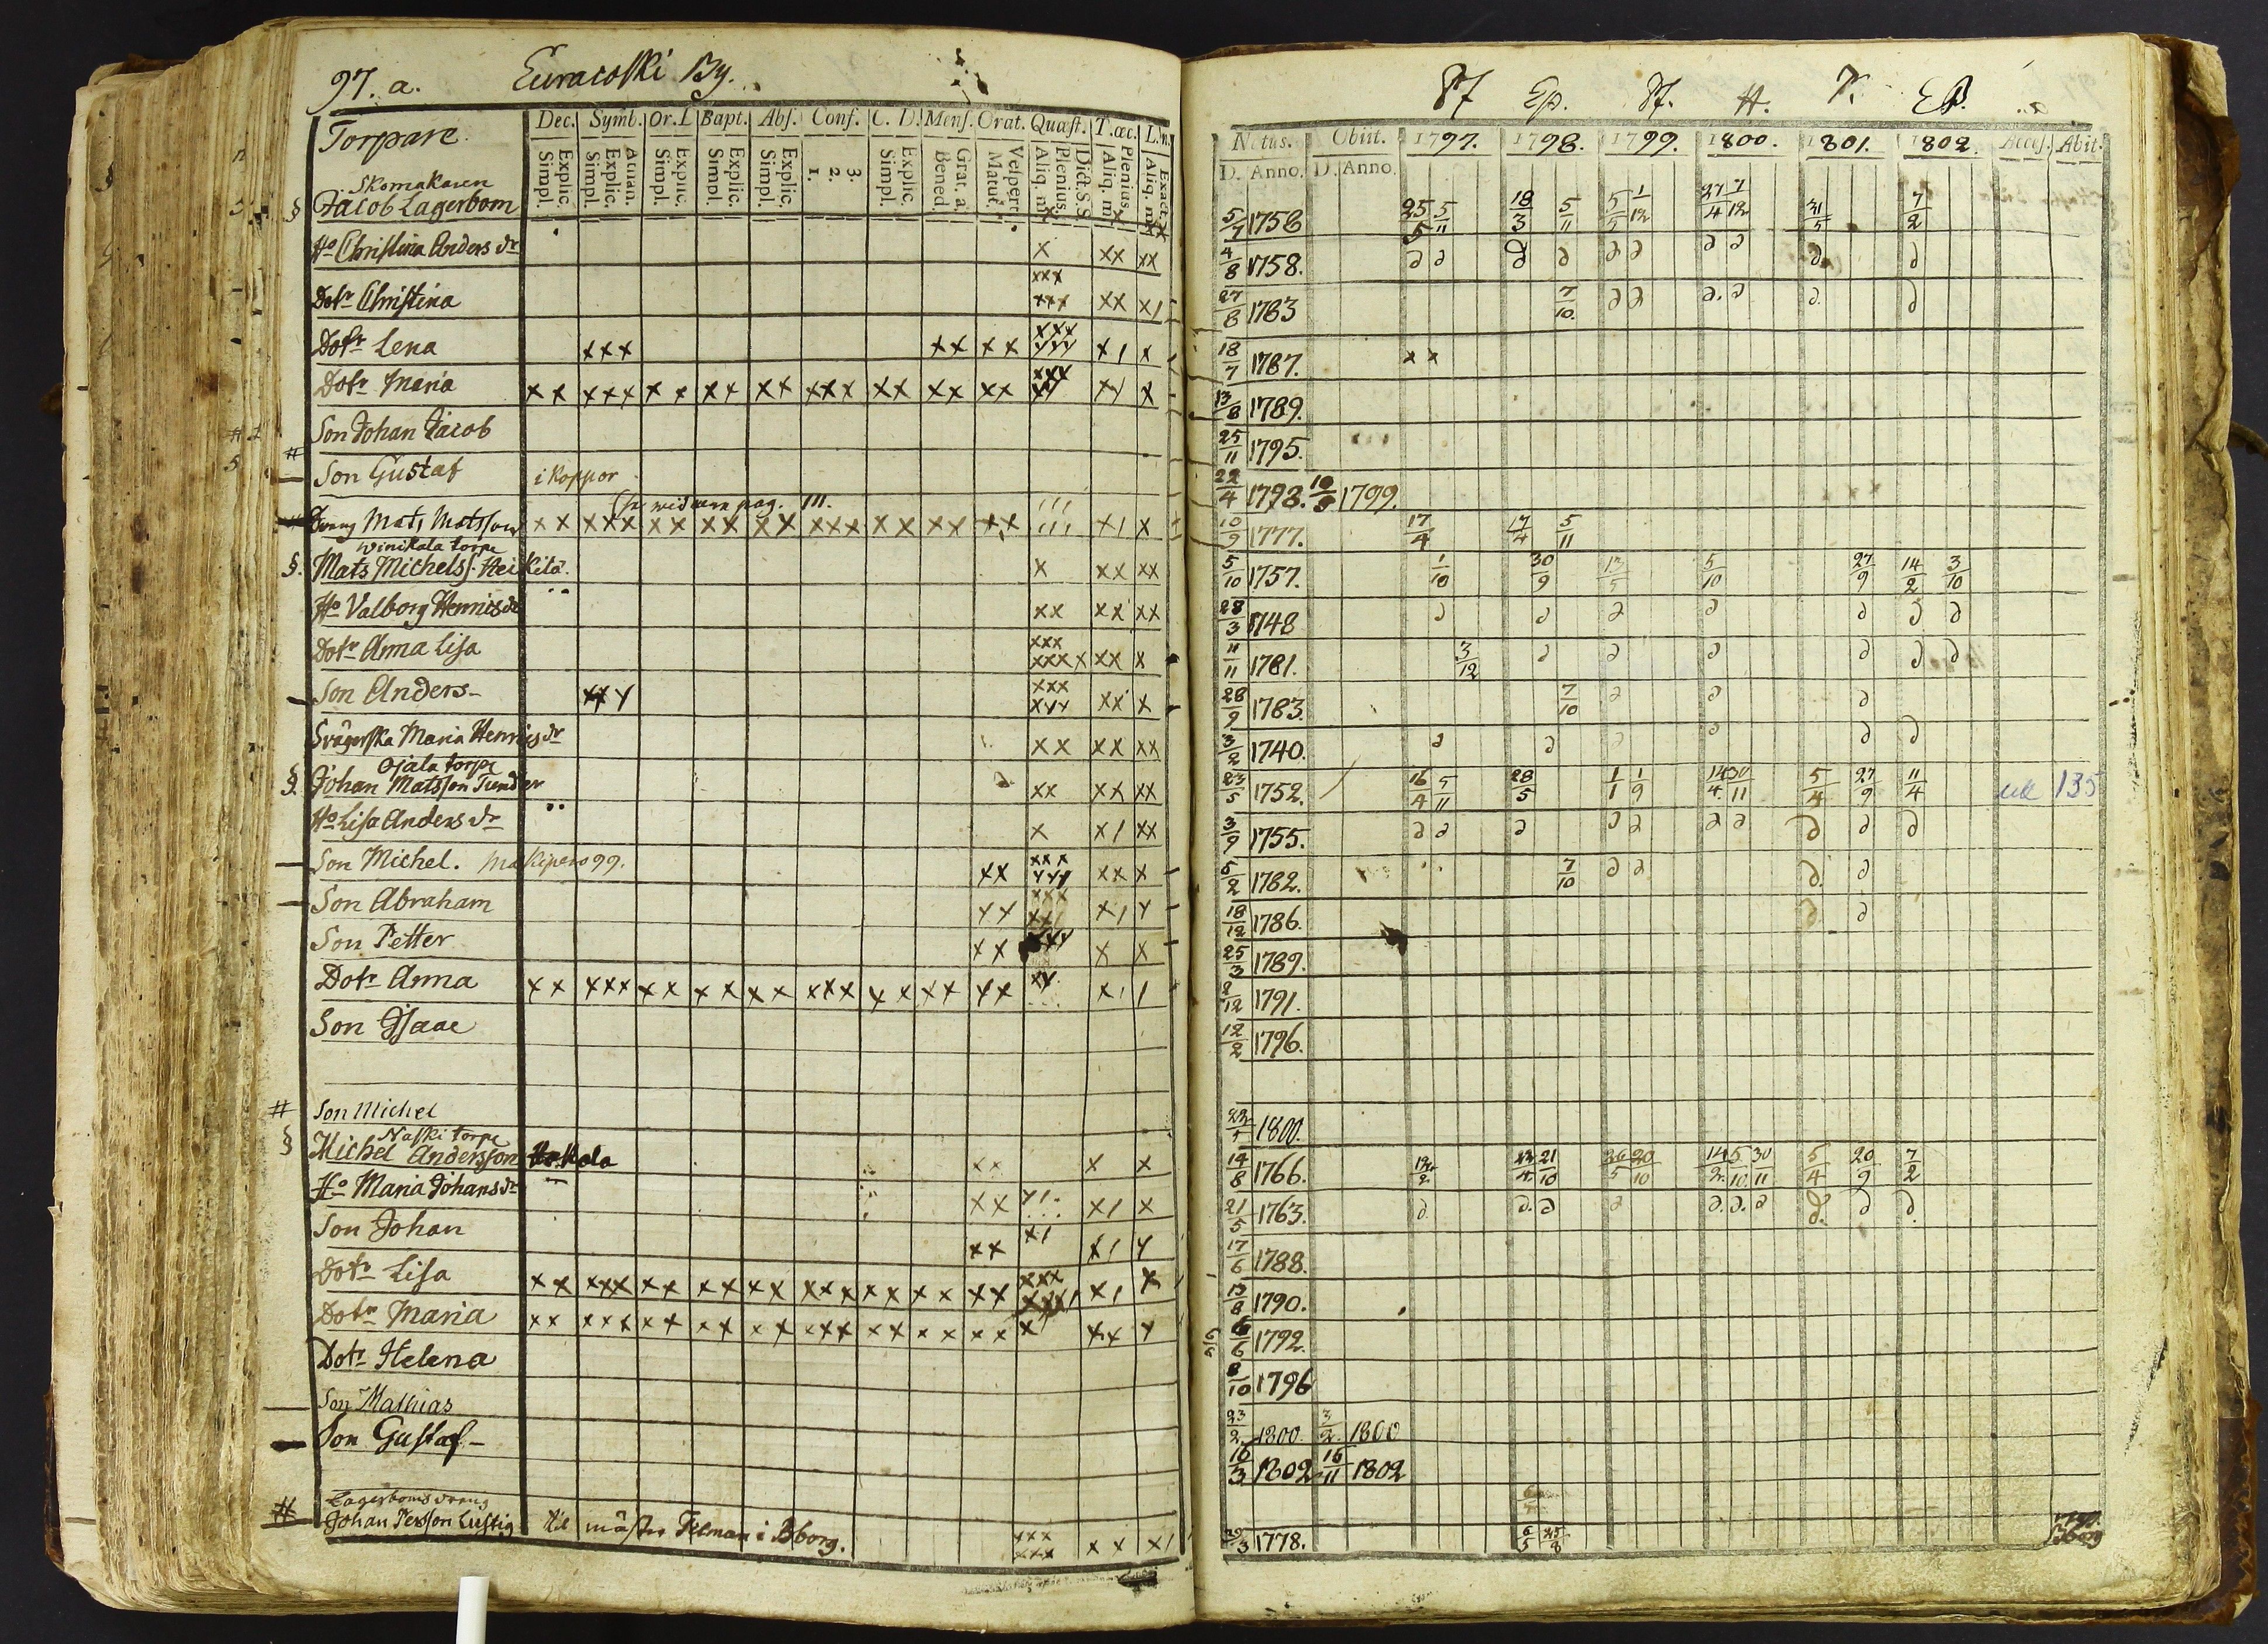 97. a. Euracoski By.
Torpare. Dec. Symb. Or. D. Bapt. Abs. Conf. C. D. Mens. Orat. Quæst. T. œc. L. n.
Explic. Simpl. Athan. Explic. Simpl. Explic. Simpl. Explic. Simpl. Explic. Simpl. 3. 2. 1. Explic. Simpl. Grat. a. Bened. Vespert. Matut. Dict. S. S. Plenius. Aliq. m. Plenius Aliq. m. Exact. Aliq. m.
Skomakaren
§ Jacob Lagerbom
Ho Christina Anders dr x xx xx
Dotr Christina xxx xxx xx x/
Dotr Lena xxx xx xx xxx xxx x/ x
Dotr Maria xx xxx xx xx xx xxx xx xx xx xxx xx xx x
Son Johan Jacob
Son Gustaf i koppor
pag. 111.
Dräng Mats Matsson xx xxx xx xx xx xxx xx xx xx x/ x
Winikala torpe
§. Mats Michelss. Heikilä. x xx xx
Ho Valborg Henricsdr xx xx xx
Dotr Anna Lisa xxx xxxx xx x
Son Anders xxx xxx xxx xx x
Svägerska Maria Henrics dr xx xx xx
Ojala torpe
§. Johan Matsson Tunder xx xx xx
Ho Lisa Anders dr x x/ xx
Son Michel. Makipero 99. xx xxx xxx xx x
Son Abraham xx xxx xx/ x/ x
Son Petter xx xxx x x
Dotr Anna xx xxx xx xx xx xxx xx xx xx xx x/ /
Son Isaac
# Son Michel
Naski torpe
§ Michel Andersson Hakola xx x x
Ho Maria Johans dr xx x/ x
Son Johan xx x/ x/ x
Dotr Lisa xx xxx xx xx xx xxx xx xx xx xxx x/ x
Dotr Maria xx xxx xx xx xx xxx xx xx xx x xx x
Dotr Helena
Son Mathias
Son Gustaf
Lagerboms dräng
# Johan Persson Lustig til mäster Tilman i Bborg. xxx xxx xx x/
P7 Ep. P7. H. V. EP.
Natus. Obiit. 1797. 1798. 1799. 1800. 1801. 1802. Acces. Abit.
D. Anno. D. Anno.
5/7 1756 25/5 5/11 18/3 5/11 5/5 1/12 27/4 7/12 31/5 7/2
4/8 1758. d d d d d d d d d. d
27/8 1783 7/10. d d d. d d. d
18/7 1787. xx
13/8 1789.
25/11 1795.
22/4 1798. 10/9 1799.
10/9 1777. 17/4 17/4 5/11
5/10 1757. 1/10 30/9 13/5 5/10 27/9 14/2 3/10
28/3 1748 d d d d d d d
11/11 1781. 3/12 d d d d d d
28/9 1783. 7/10 d d d
3/2 1740. d d d d d d
23/5 1752. 16/4 5/11 28/5 1/1 1/9 14/4. 30/11 5/4 27/9 11/4 135
3/9 1755. d d d d d d d d d d
5/2 1782. 7/10 d d d. d
18/12 1786. d d
25/3 1789.
2/12 1791.
12/2 1796.
1800.
14/8 1766. 12/2 21/10 26/5 20/10 14/2. 5/10. 30/11 5/4 20/9 7/2
21/5 1763. d. d. d d d. d. d d. d d.
17/6 1788.
13/8 1790.
6/6 1792.
8/10 1796
23/2. 1800. 3/2. 1800
16/3 1802 16/11 1802
1778. 6/5 25/8 1797. Bborg